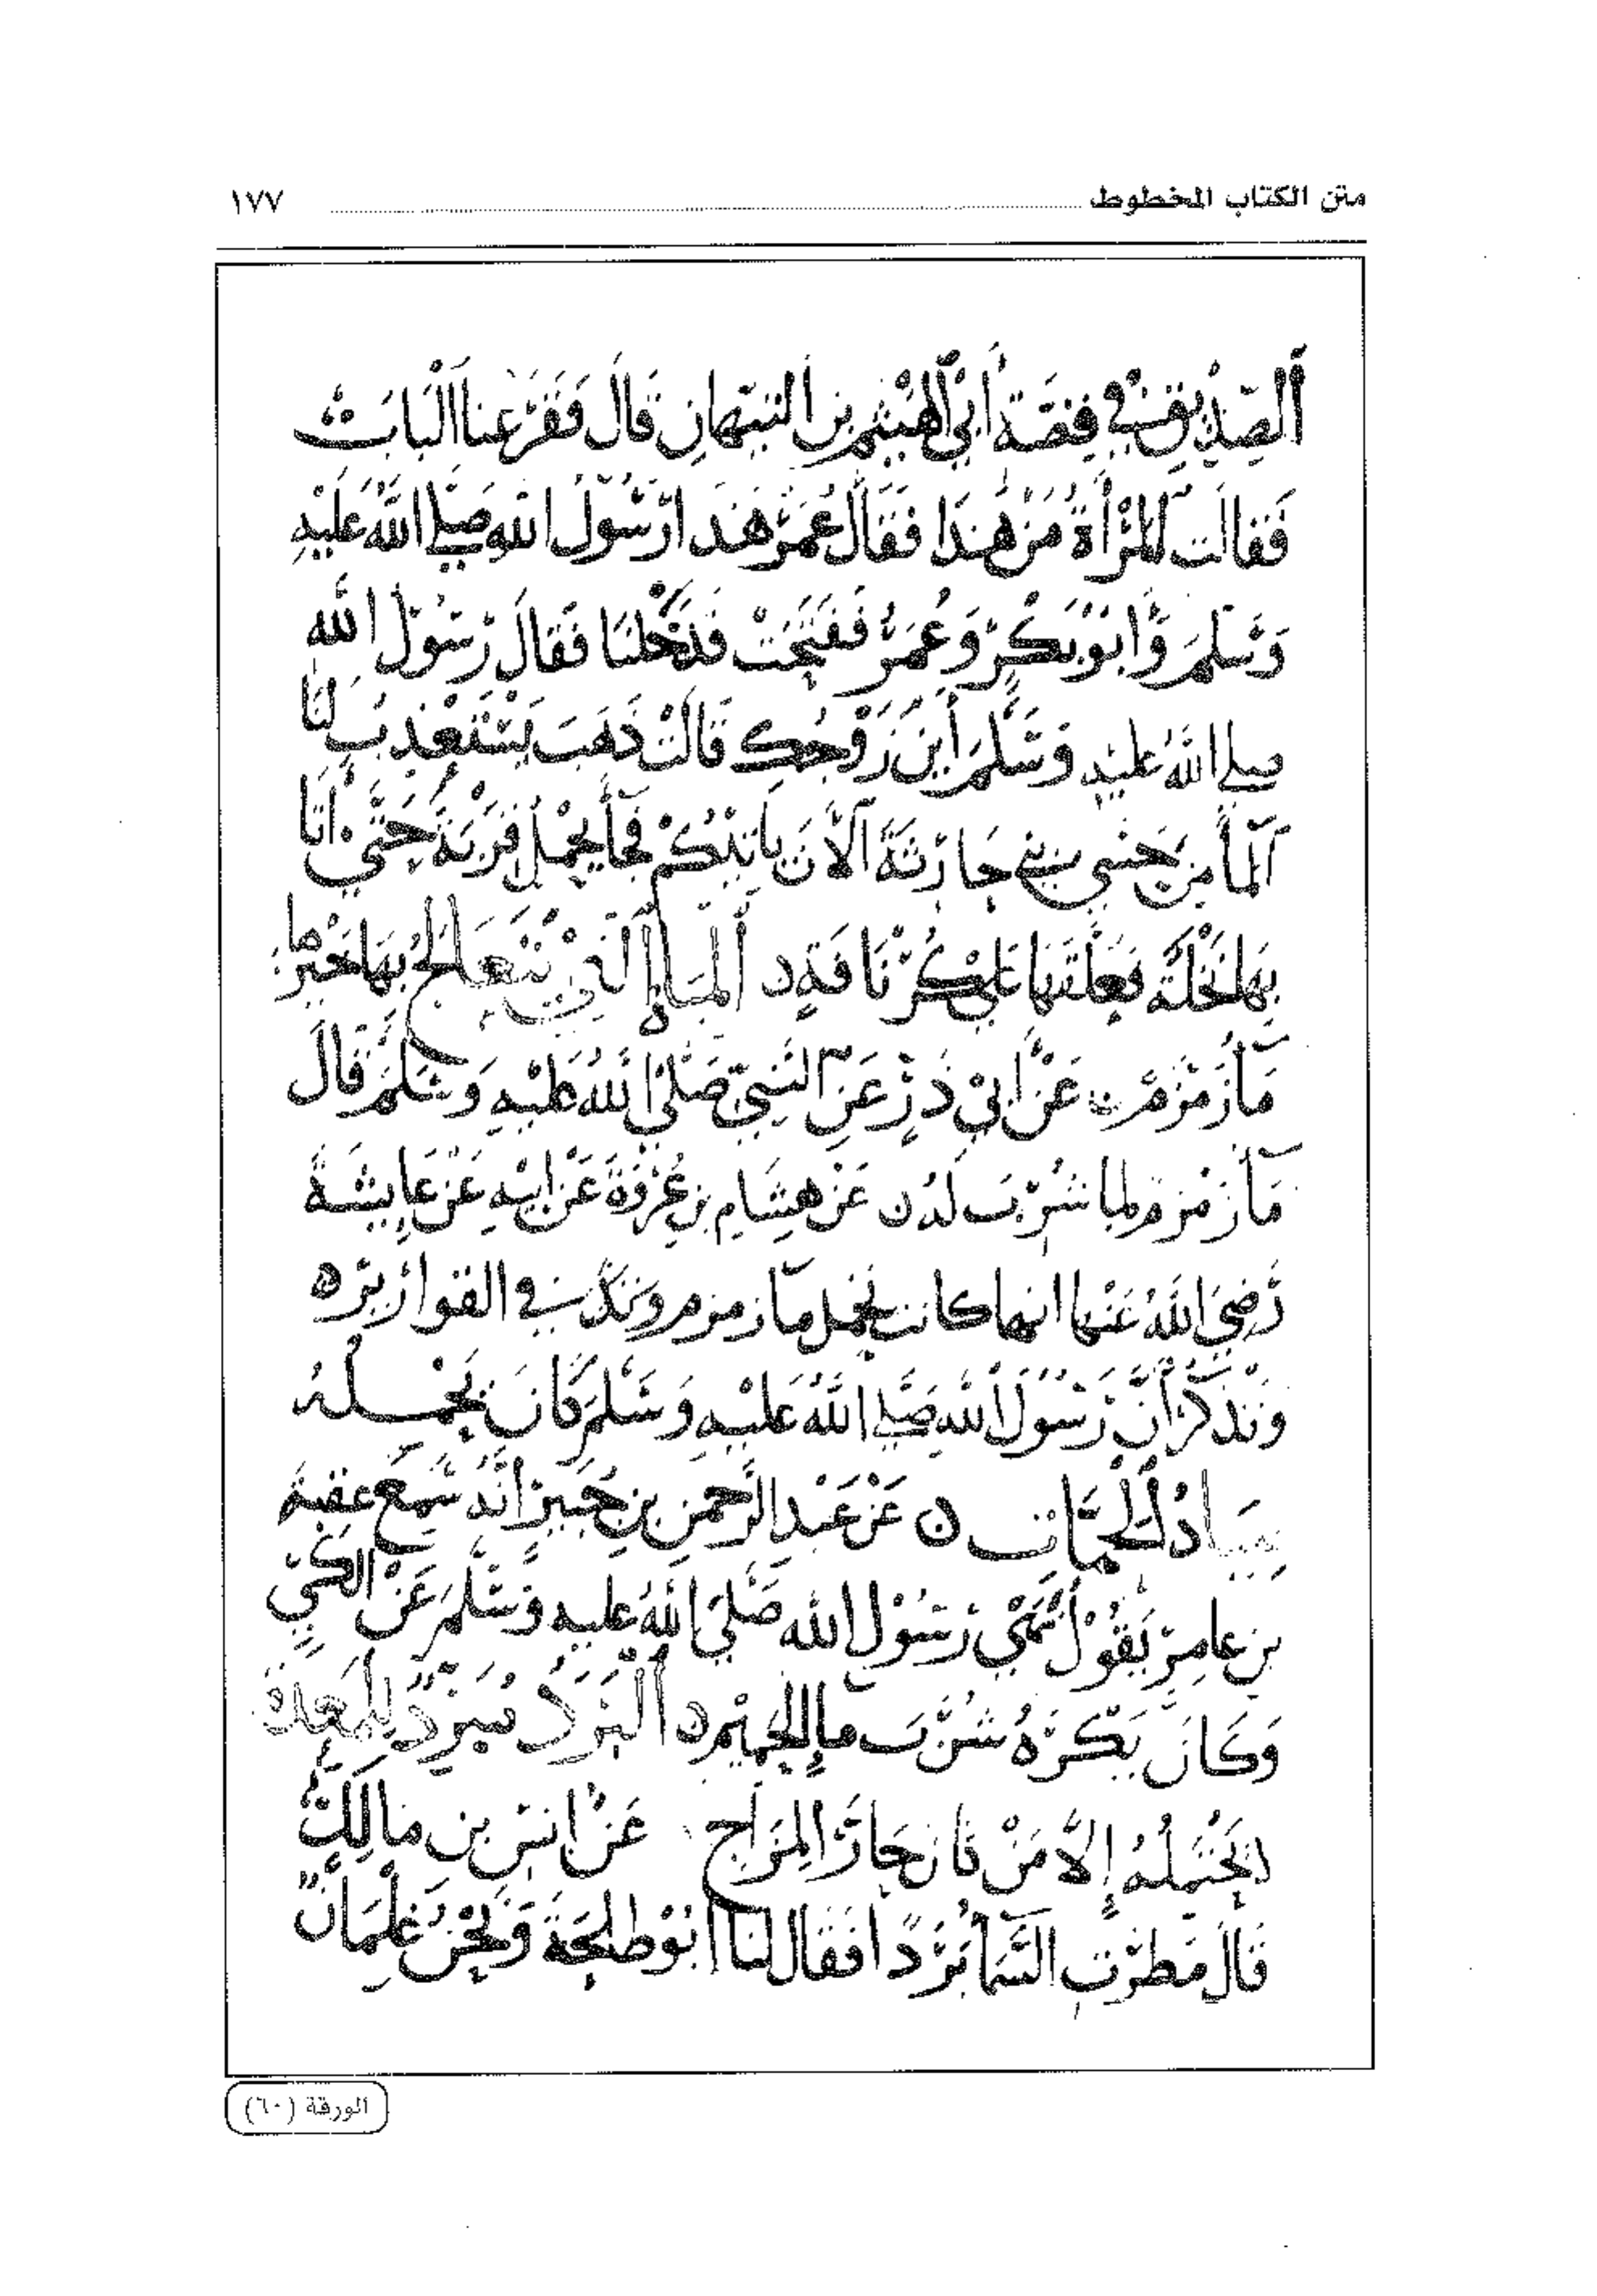 متن الكتاب المخطوط ١٧٧
الصِّدِّيقِ فِي قِصَّةِ أَبِي الْهَيْثَمِ بنِ التَّيِّهَانِ قَالَ فَقَرَعْنَا الْبَابَ
فَقَالَتِ الْمَرْأَةُ مَنْ هَذَا فَقَالَ عُمَرُ هَذَا رَسُولُ اللهِ صَلَّى اللهُ عَلَيْهِ
وَسَلَّمَ وَأَبُو بَكْرٍ وَعُمَرُ فَفَتَحَتْ فَدَخَلْنَا فَقَالَ رَسُولُ الله
صلى اللهُ عليهِ وَسَلَّمَ أَيْنَ زَوْجُكِ قَالَتْ ذَهَبَ يَسْتَعْذِبُ لَنَا
الْمَأَ مِنْ حِسْيِ بني حَارِثَةَ الْآنَ يَأْتِيكُمْ فَجَأَ يَحْمِلُ قِرْبَةً حَتَّى أَتَا
بِهَا نَخْلَةً فَعَلَّقَهَا بِكُرْنَافَةٍ ن الْمِيَاهُ الَّتِي يُتَعَالَجُ بِهَا خَيْرُهَا
مَآ زَمْزَمَ ن عَنْ أَبِي ذَرٍّ عَنِ النَّبِيِّ صَلَّى اللهُ عَلَيْهِ وَسَلَّمَ قَالَ
مَآ زَمْزَمَ لِمَا شُرِبَ لَهُ ن عَنْ هِشَامِ بنِ عُرْوَةَ عَنْ أَبِيهِ عَنْ عَايِشَةَ
رَضِيَ اللهُ عَنْهَا انها كانت تحمل مآ زمزم في القوارير ه
وَتَذْكُرُ أَنَّ رَسُولَ اللهِ صَلَّى اللهُ عَلَيْهِ وَسَلَّمَ كَانَ يَحْمِلُهُ
ن عَنْ عَبْدِ الرَّحْمَنِ بنِ جُبَيْرٍ أَنَّهُ سَمِعَ عقبة
بن عامِرٍ يَقُولُ نَهَى رَسُولُ الله صَلَّى اللهُ عليه وَسَلَّمَ عَنْ الكَيِّ
وَكَانَ يَكْرَهُ شُرْبَ مآءِ الحَمِيمِ ن الْبَرَدُ مُبَرِّدٌ لِلْمَعِدَةِ
لَا يَحْتَمِلُهُ إِلَّا مَنْ كَانَ حَارَّ الْمِزَاجِ عَنْ أَنَسِ بنِ مَالِكٍ
قَالَ مَطَرَتِ السَّمَآ بَرَدًا فَقَالَ لَنَا أَبُو طَلْحَةَ وَنَحْنُ غِلْمَانٌ
الورقة (٦٠)